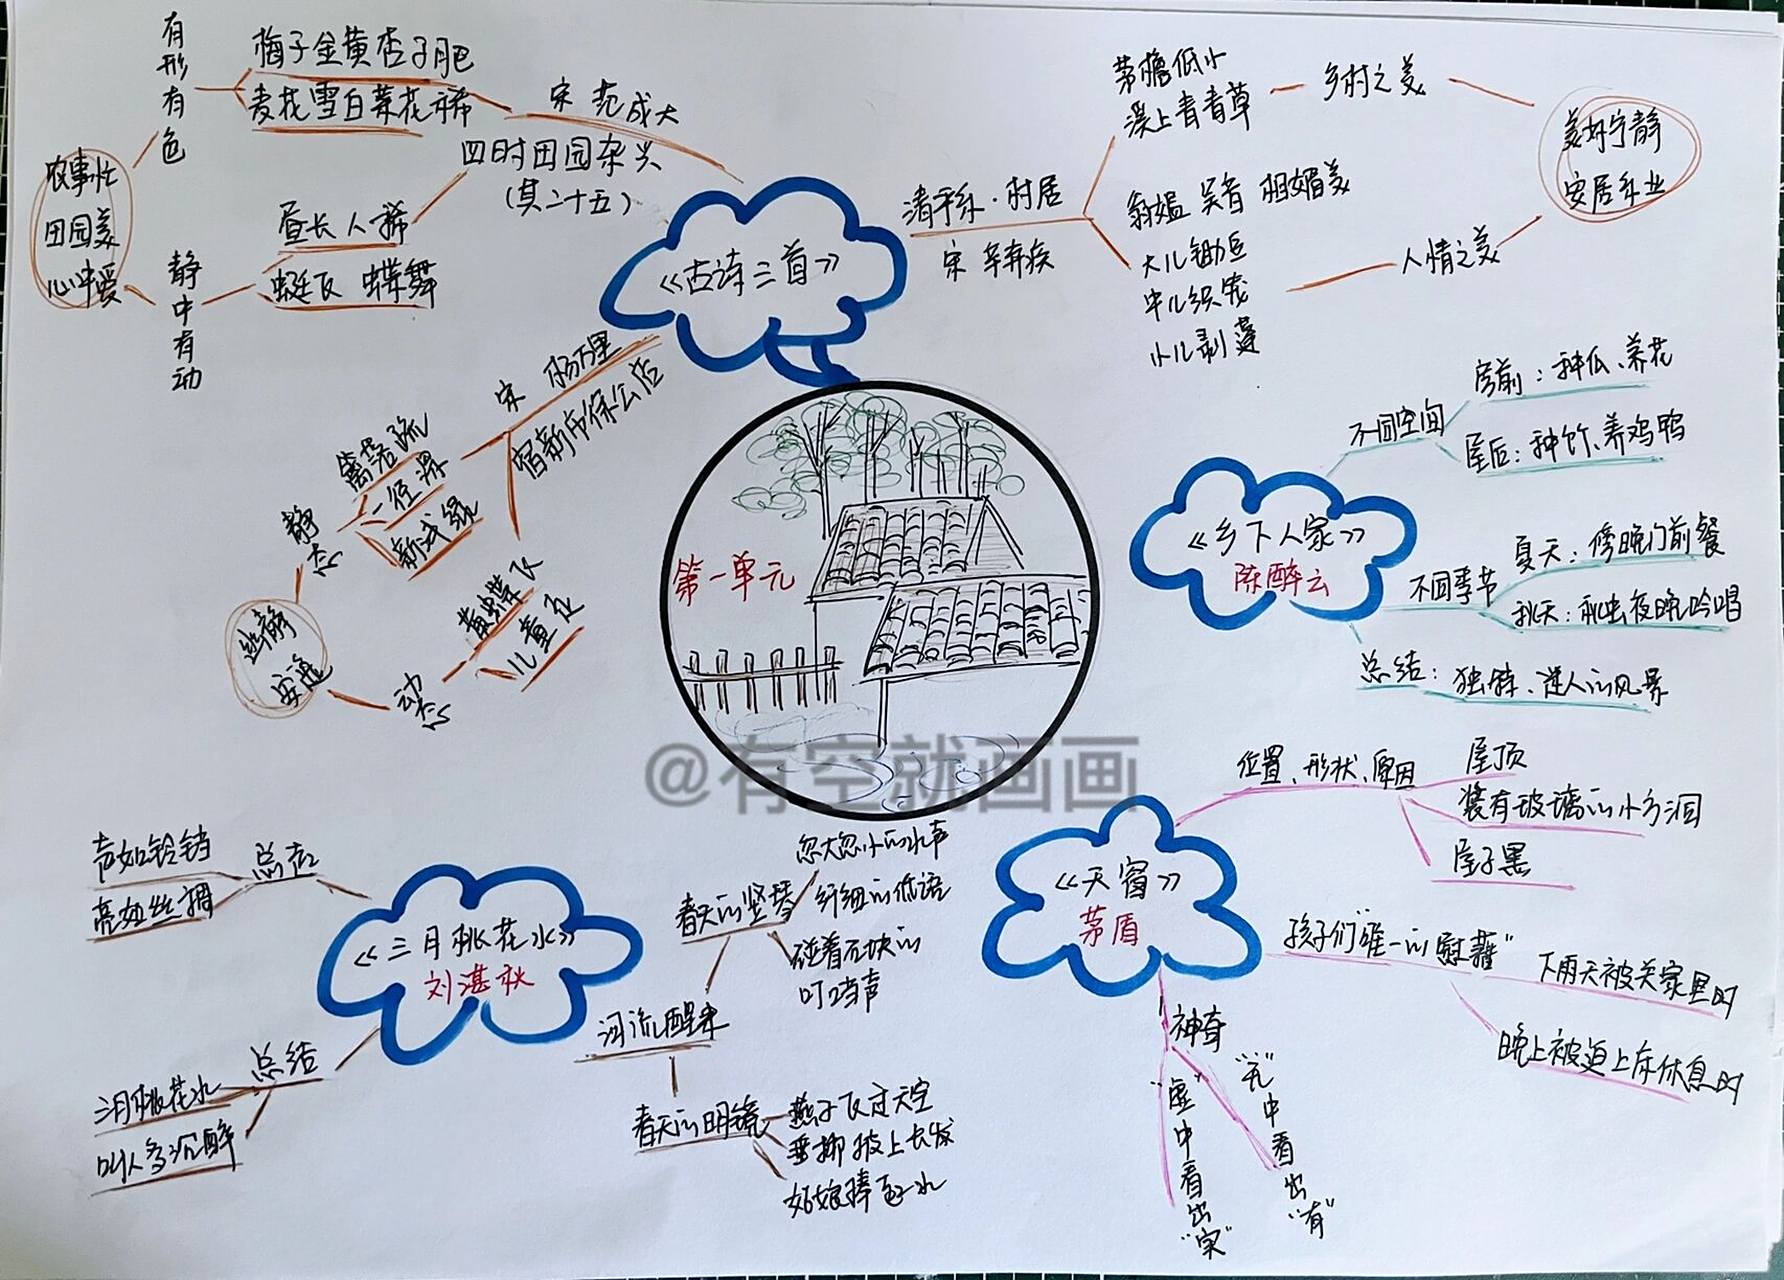 有形有色
梅子金黄杏子肥
麦花雪白菜花稀
宋 范成大
四时田园杂兴
(其二十五)
农事忙
田园美
心中爱
静中有动
昼长人稀
蜓飞 蝶舞
《古诗三首》
清平乐·村居
宋 辛弃疾
茅檐低小
溪上青青草
乡村之美
翁媪 吴音 相媚美
大儿锄豆
中儿织笼
小儿剥莲
人情之美
美好宁静
安居乐业
宋 杨万里
宿新市徐公店
篱落疏
一径深
新成绿
静态
黄蝶飞
儿童追
动态
恬静
安逸
第一单元
《乡下人家》
陈醉云
不同空间
房前:种瓜、养花
屋后:种竹、养鸡鸭
不同季节
夏天:傍晚门前餐
秋天:秋虫夜晚吟唱
总结:独特、迷人的风景
@有空就画画
《天窗》
茅盾
位置、形状、原因
屋顶
装有玻璃的小方洞
屋子黑
孩子们唯一的"慰藉"
下雨天被关家里时
晚上被迫上床休息时
神奇
"虚"中看出"实"
"无"中看出"有"
《三月桃花水》
刘湛秋
总起
声如铃铛
亮如丝绸
总结
三月桃花水
叫人多沉醉
河流醒来
春天的竖琴
忽大忽小的水声
纤细的低语
碰着石块的
叮当声
春天的明镜
燕子飞过天空
垂柳披上长发
姑娘捧起水